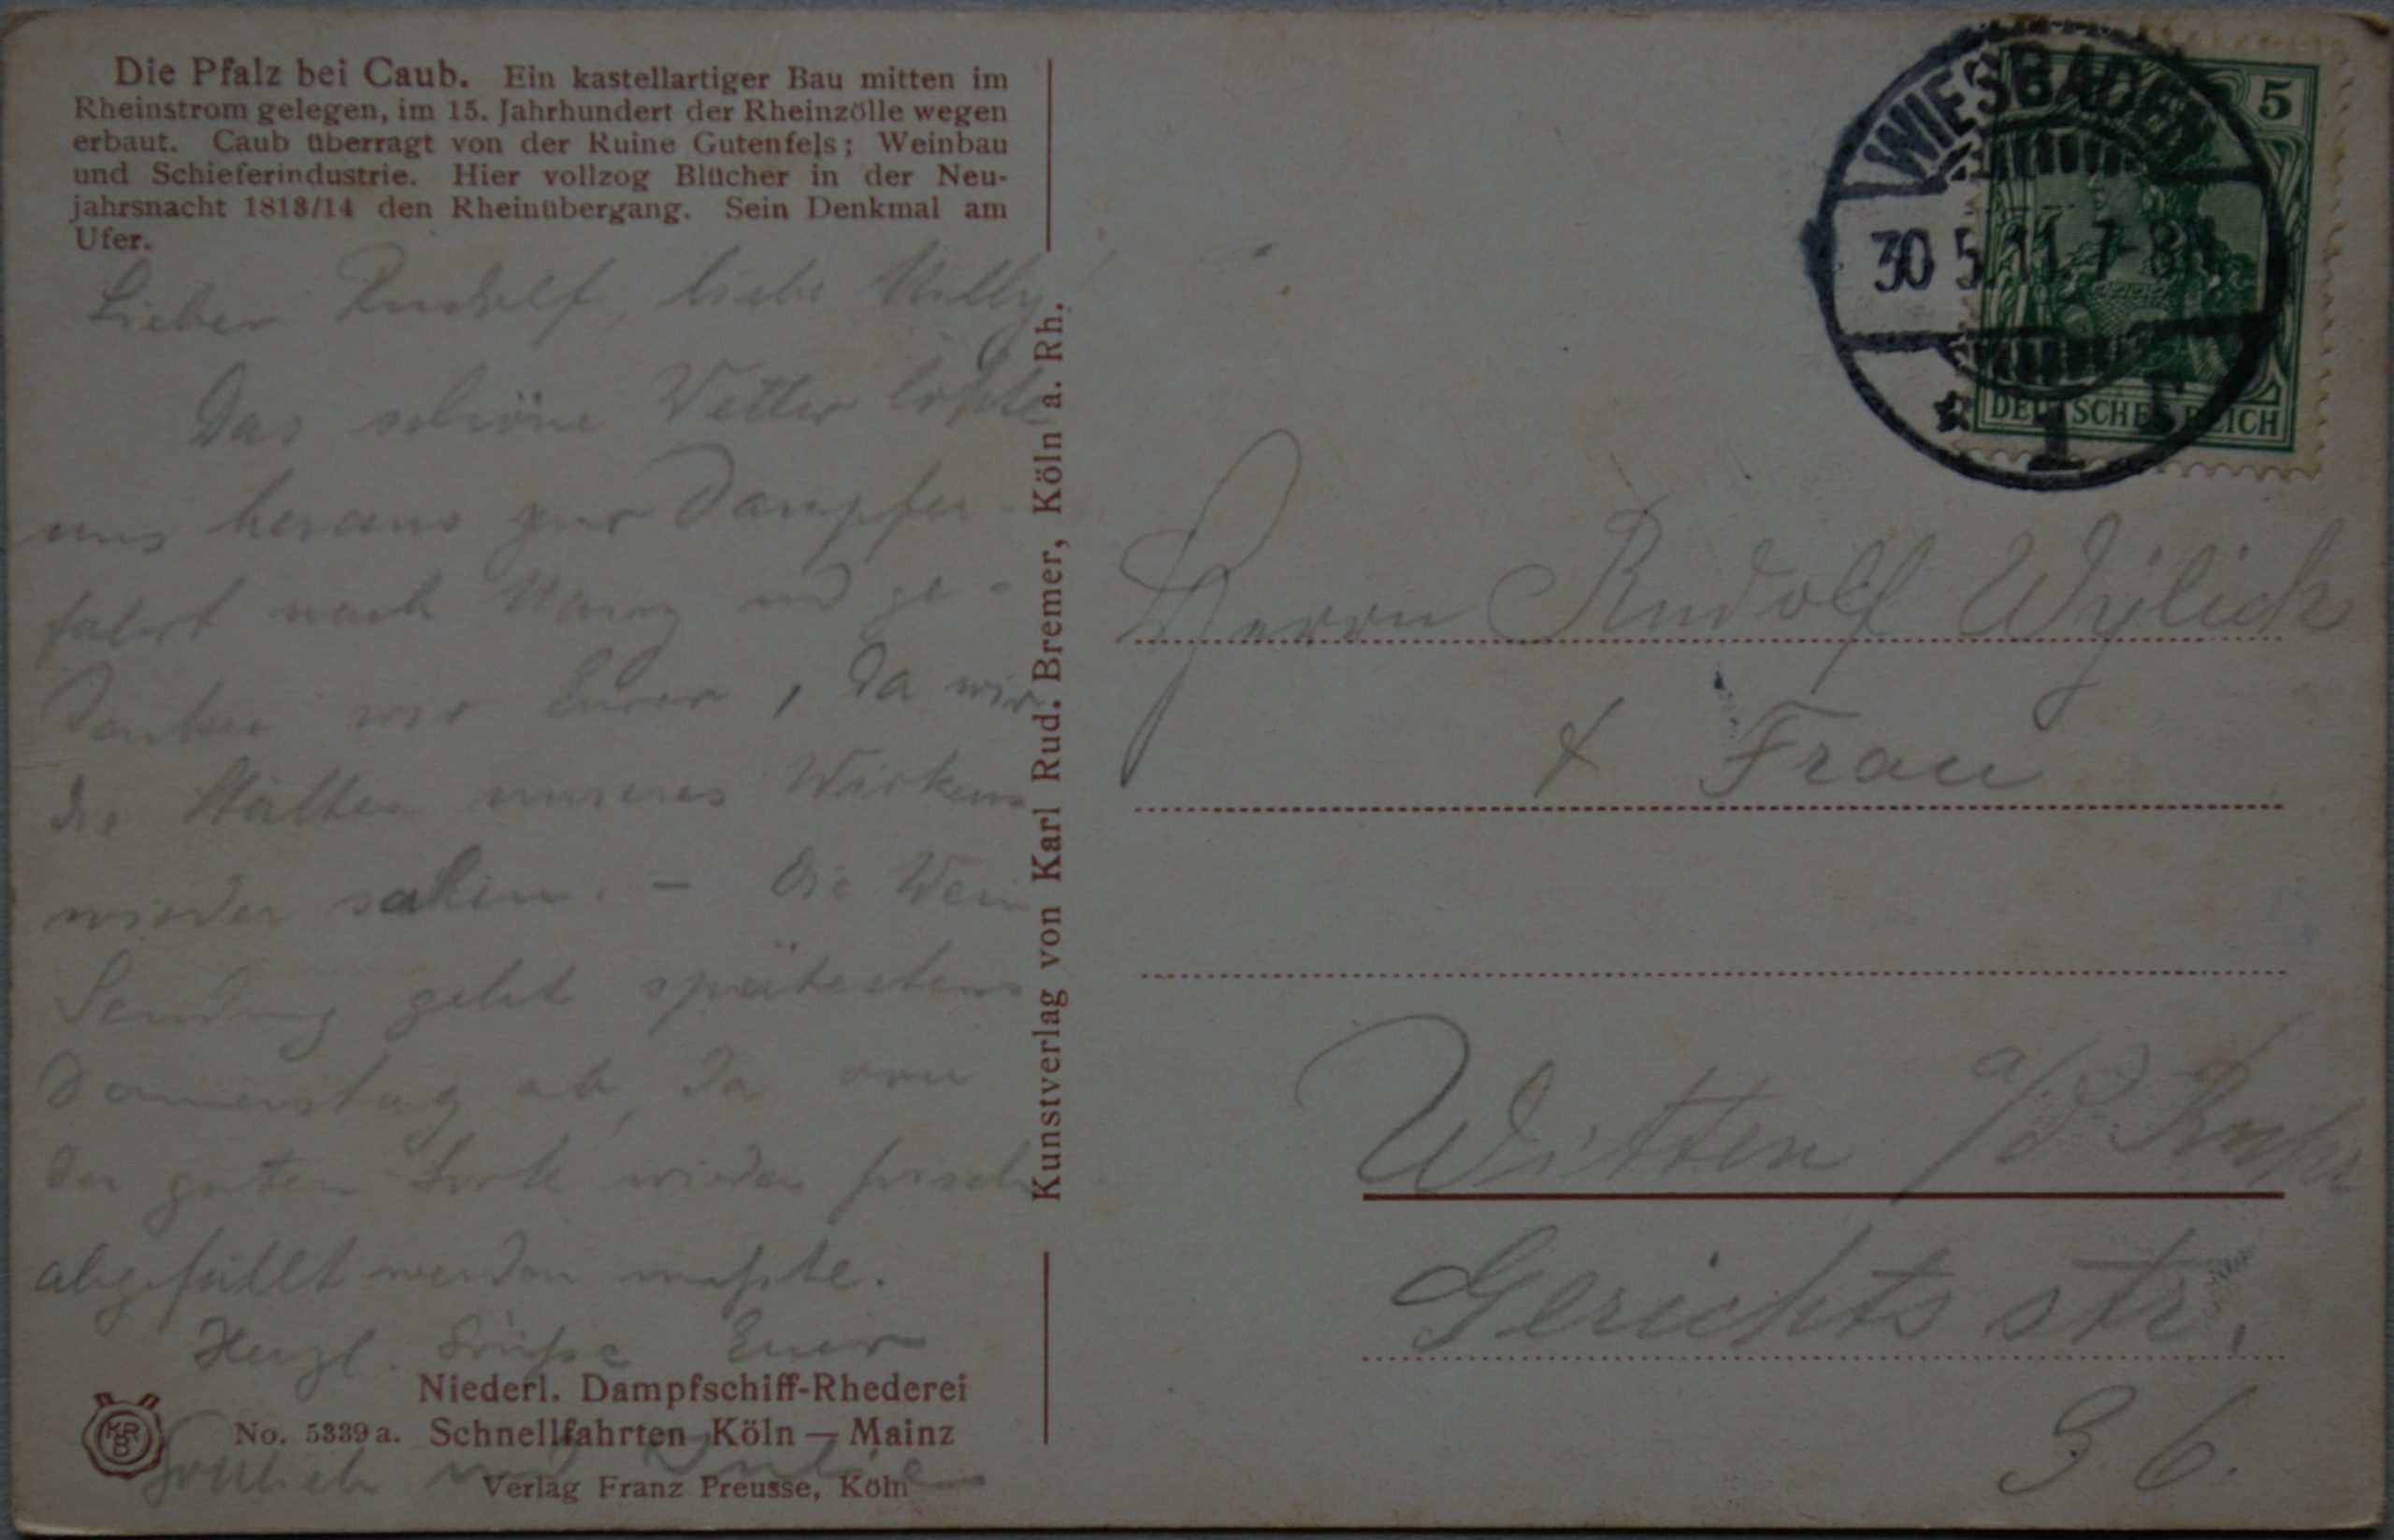 Die Pfalz bei Caub. Ein kastellartiger Bau mitten im
Rheinstrom gelegen, im 15. Jahrhundert der Rheinzölle wegen
erbaut. Caub überragt von der Ruine Gutenfels; Weinbau
und Schieferindustrie. Hier vollzog Blücher in der Neu-
jahrsnacht 1813/14 den Rheinübergang. Sein Denkmal am
Ufer.
Lieber Rudolf, liebe Milly!
Das schöne Wetter lockte
uns heraus zur Dampfer-
fahrt nach Mainz und ge-
denken wir Eurer, da wir
die Stätten unseres Wirkens
wieder sahen. - Die Wein
Sendung geht spätestens
Donnerstag ab, da von
der guten Sorte wieder frisch
abgefüllt werden mußte.
Herzl. Grüße Euer
und
Niederl. Dampfschiff-Rhederei
No. 5339a. Schnellfahrten Köln — Mainz
Verlag Franz Preusse, Köln
KRB
Kunstverlag von Karl Rud. Bremer, Köln a. Rh.
WIESBADEN
30 5.11. 7-8
* 1
5
DEUTSCHES REICH
Herrn Rudolf Wylich
& Frau
Witten a/d. Ruhr
Gerichtsstr.
36.